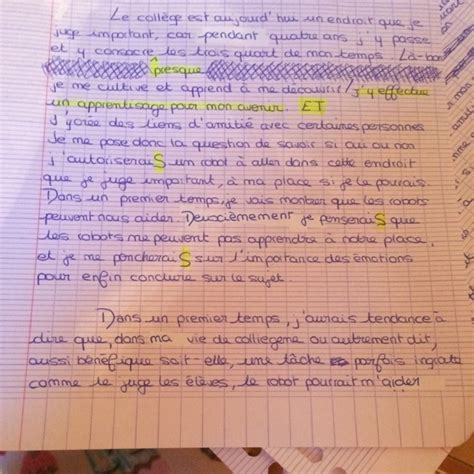 Le collège est aujourd'hui un endroit que je
juge important, car pendant quatre ans j'y passe
et y consacre les trois quart de mon temps. Là-bas
presque
je me cultive et apprend à me découvrir, j'y effectue
un apprentisage pour mon avenir. ET
j'y crée des liens d'amitié avec certaines personnes
Je me pose donc la question de savoir si oui ou non
j'autoriseraiS un robot à aller dans cette endroit
que je juge important, à ma place si je le pouvais.
Dans un premier temps, je vais montrer que les robots
peuvent nous aider. Deuxièmement je penseraiS que
les robots ne peuvent pas apprendre à notre place,
et je me pencheraiS sur l'importance des émotions
pour enfin conclure sur le sujet.
Dans un premier temps, j'aurais tendance à
dire que, dans ma vie de collégienne ou autrement dit,
aussi bénéfique soit-elle, une tâche parfois ingrate
comme le juge les élèves, le robot pourrait m'aider